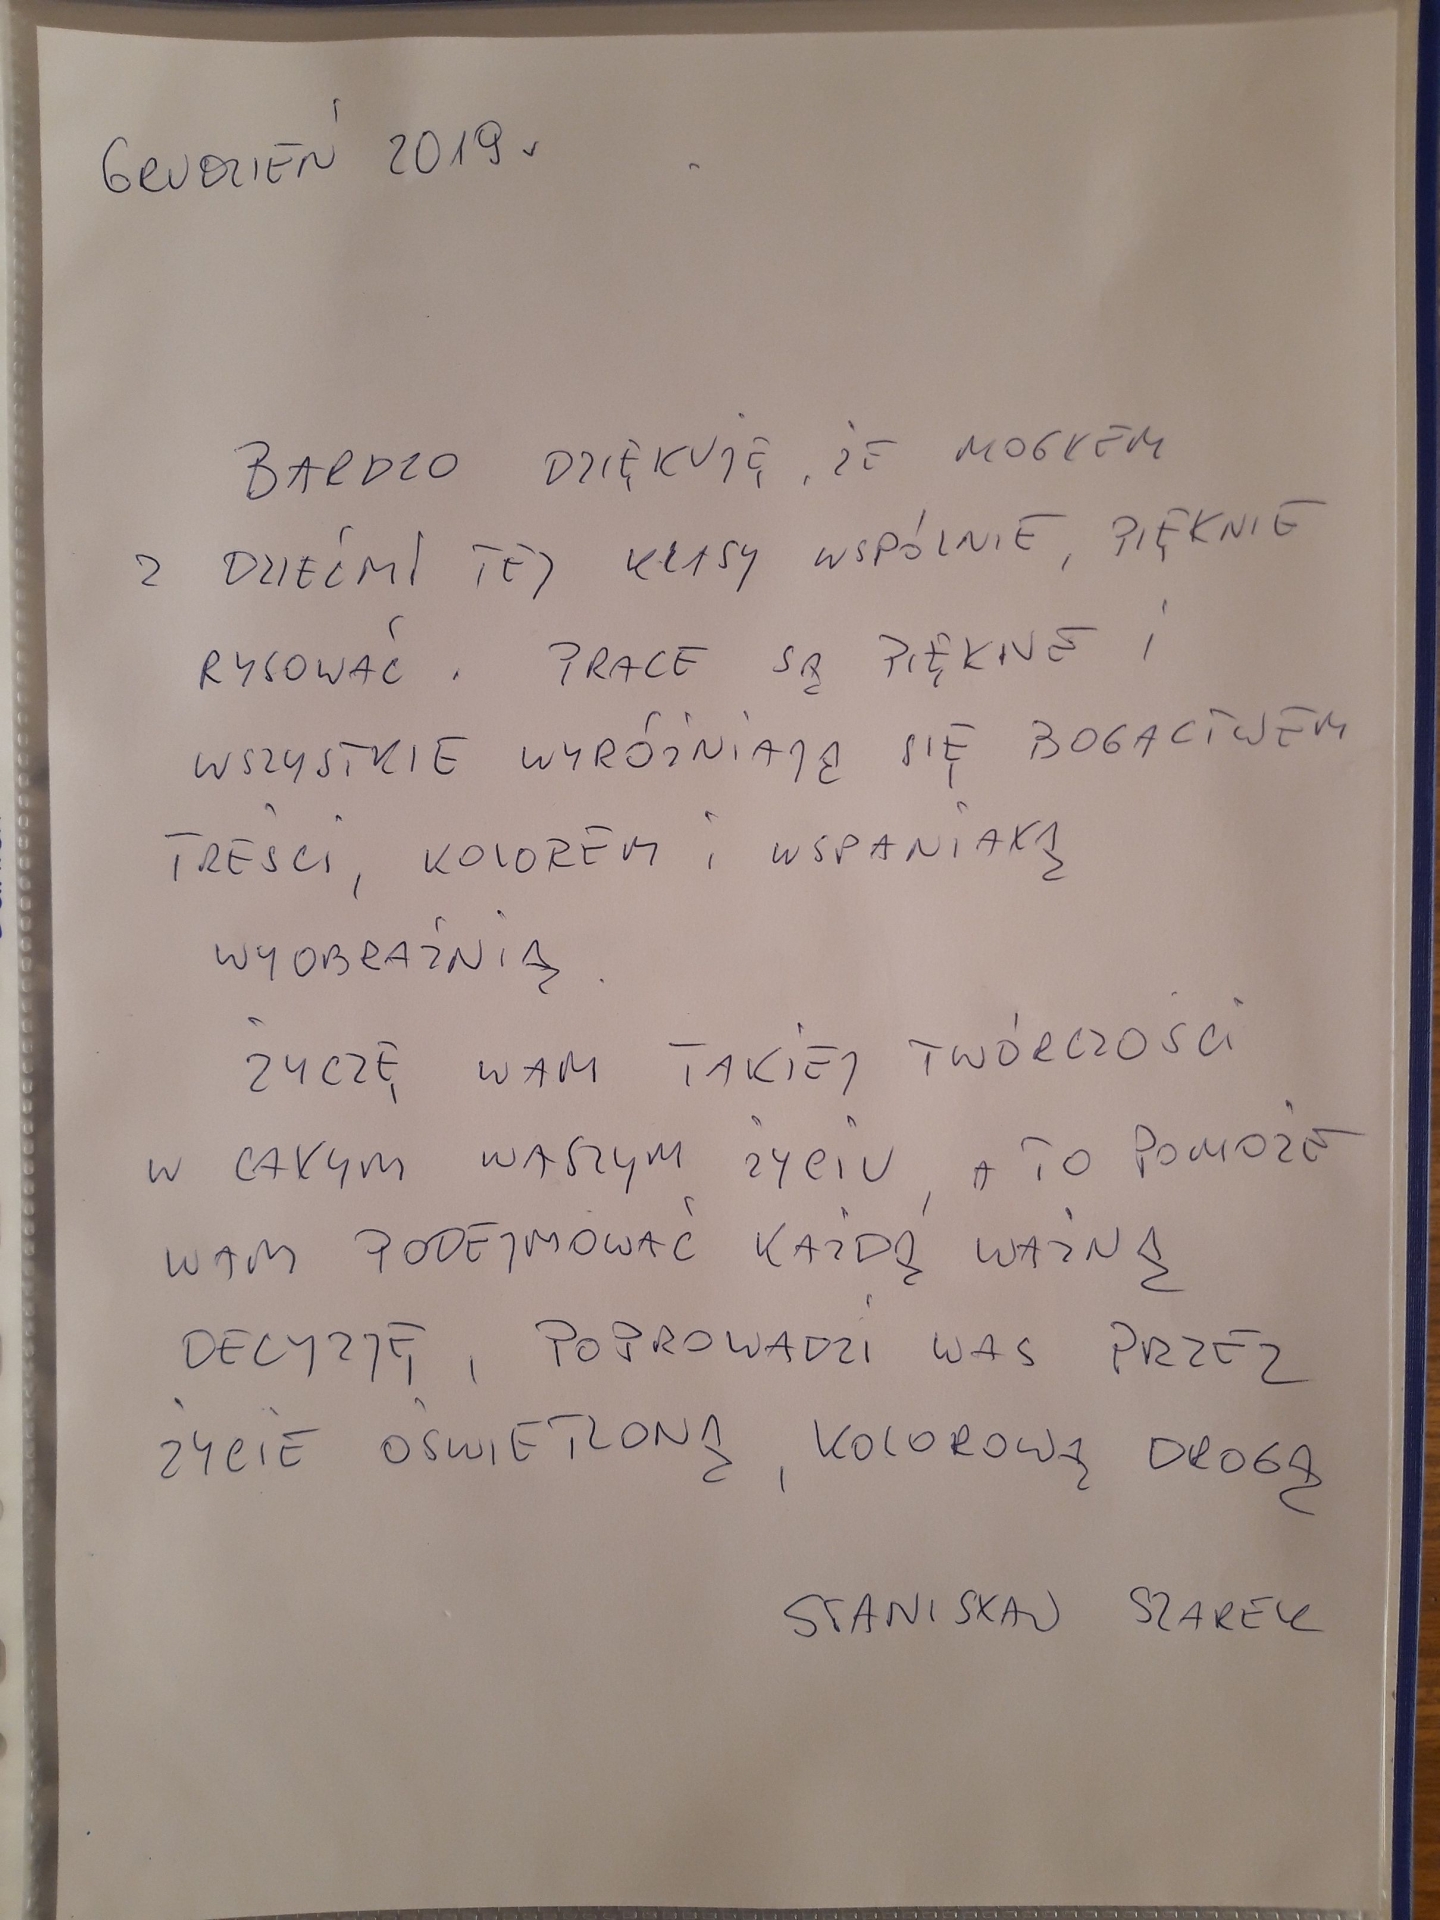 GRUDZIEŃ 2019r
BARDZO DZIĘKUJĘ, ŻE MOGŁEM
Z DZIEĆMI TEJ KLASY WSPÓLNIE, PIĘKNIE
RYSOWAĆ. PRACE SĄ PIĘKNE I
WSZYSTKIE WYRÓŻNIAJĄ SIĘ BOGACTWEM
TREŚCI, KOLOREM I WSPANIAŁĄ
WYOBRAŹNIĄ.
ŻYCZĘ WAM TAKIEJ TWÓRCZOŚCI
W CAŁYM WASZYM ŻYCIU, A TO POMOŻE
WAM PODEJMOWAĆ KAŻDĄ WAŻNĄ
DECYZJĘ, POPROWADZI WAS PRZEZ
ŻYCIE OŚWIETLONĄ, KOLOROWĄ DROGĄ
STANISŁAW SZAREK